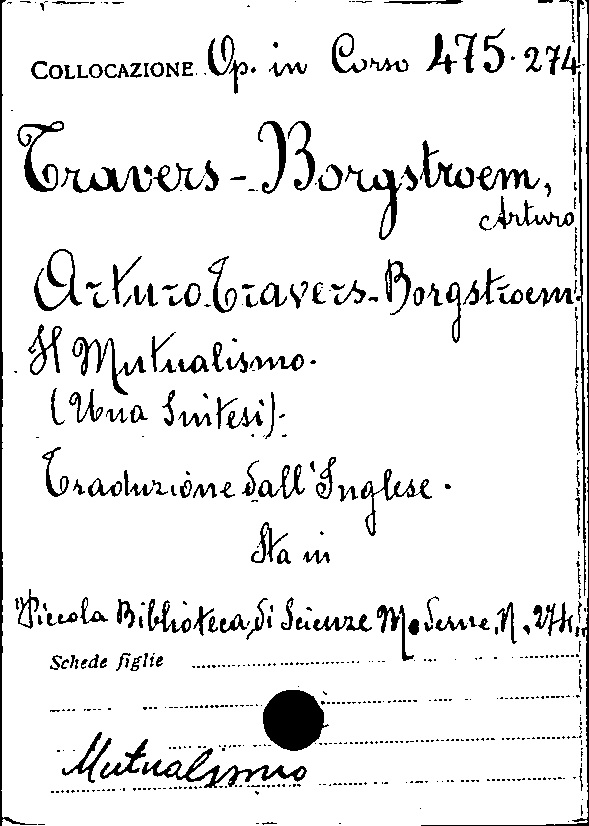 COLLOCAZIONE Op. in Corso 475.274
Travers-Borgstroem,
Arturo
Arturo Travers-Borgstroem.
Il Mutualismo.
(Una Sintesi).
Traduzione dall'Inglese.
Sta in
"Piccola Biblioteca di Scienze Moderne, N. 274."
Schede figlie
Mutualismo